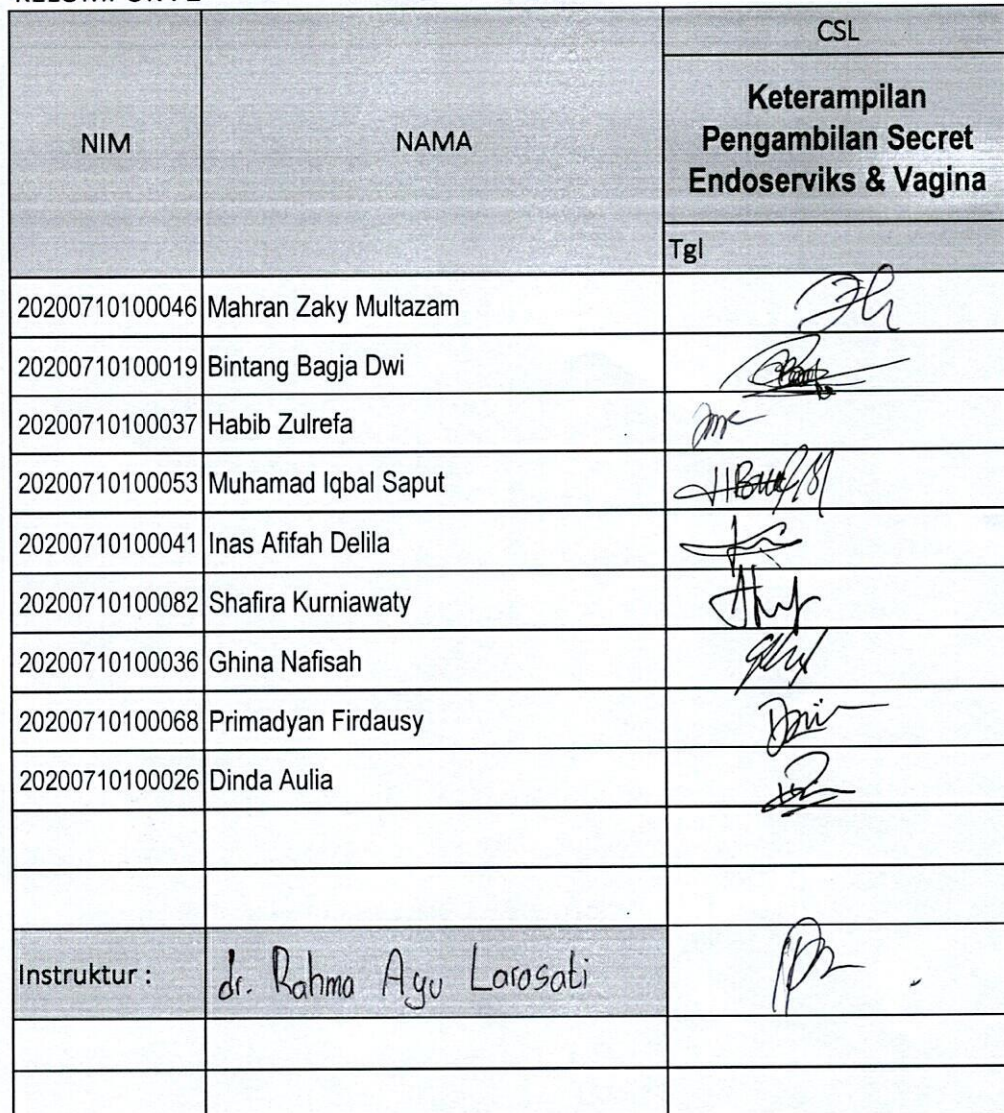 CSL
NIM
NAMA
Keterampilan
Pengambilan Secret
Endoserviks & Vagina
Tgl
20200710100046 Mahran Zaky Multazam
20200710100019 Bintang Bagja Dwi
20200710100037 Habib Zulrefa
20200710100053 Muhamad Iqbal Saput
20200710100041 Inas Afifah Delila
20200710100082 Shafira Kurniawaty
20200710100036 Ghina Nafisah
20200710100068 Primadyan Firdausy
20200710100026 Dinda Aulia
Instruktur : dr. Rahma Ayu Larosati